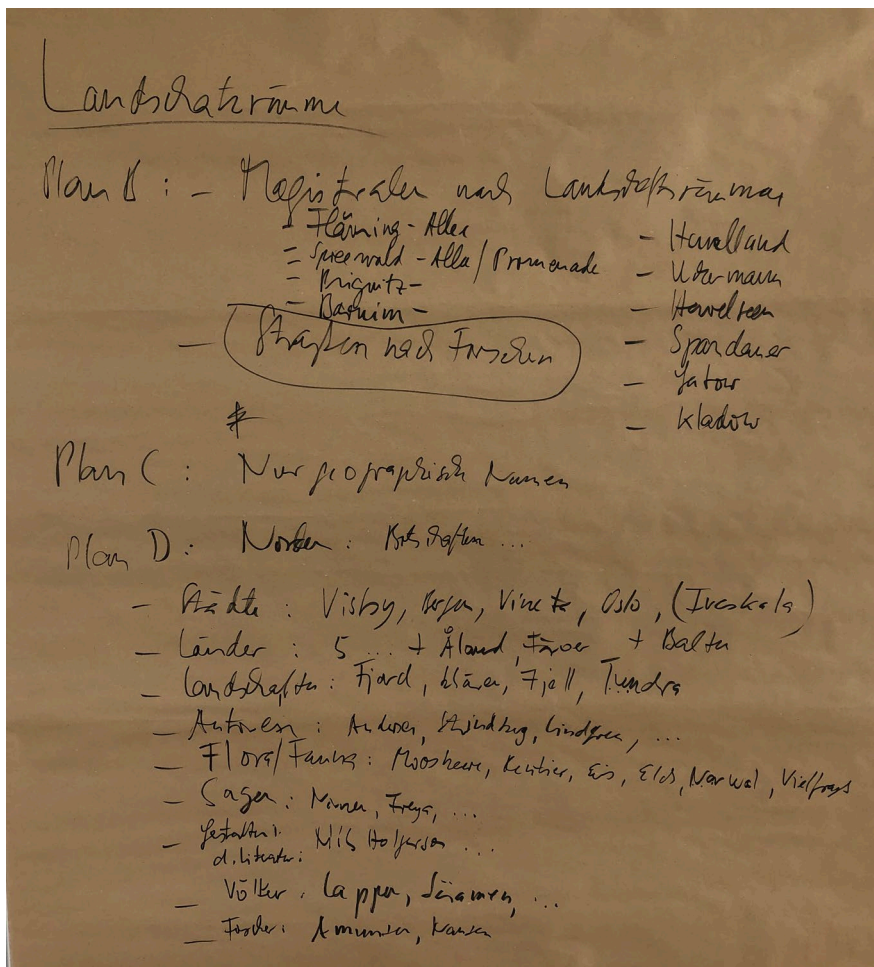 Landschaftsräume
Plan B : - Magistralen nach Landschaftsräumen
- Fläming - Allee
- Spreewald - Allee / Promenade
- Prignitz -
- Barnim -
- Havelland
- Uckermark
- Havelseen
- Spandauer
- Gatow
- Kladow
- Straßen nach Forschern
*
Plan C : Nur geographische Namen
Plan D : Norden : Botschaften ...
- Städte : Visby, Bergen, Vineta, Oslo, (Iveskala)
- Länder : 5 ... + Åland, Färoer + Balten
- Landschaften : Fjord, Schären, Fjell, Tundra
- Autoren : Andersen, Strindberg, Lindgren, ...
- Flora/Fauna : Moosbeere, Rentier, Eis, Elch, Narwal, Vielfraß
- Sagen : Freya, ...
- Gestalten i. d. Literatur : Nils Holgerson ...
- Völker : Lappen, ...
- Forscher : Amunsen, Nansen